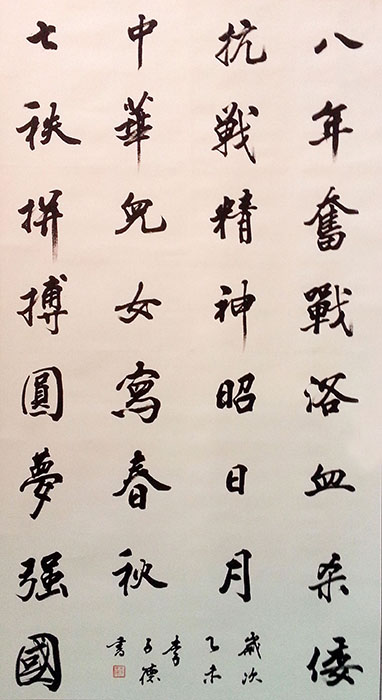 八年奮戰浴血杀倭
抗戦精神昭日月
中華兒女寫春秋
七秩拼搏圓夢强國
歲次
乙未
李
子德
書